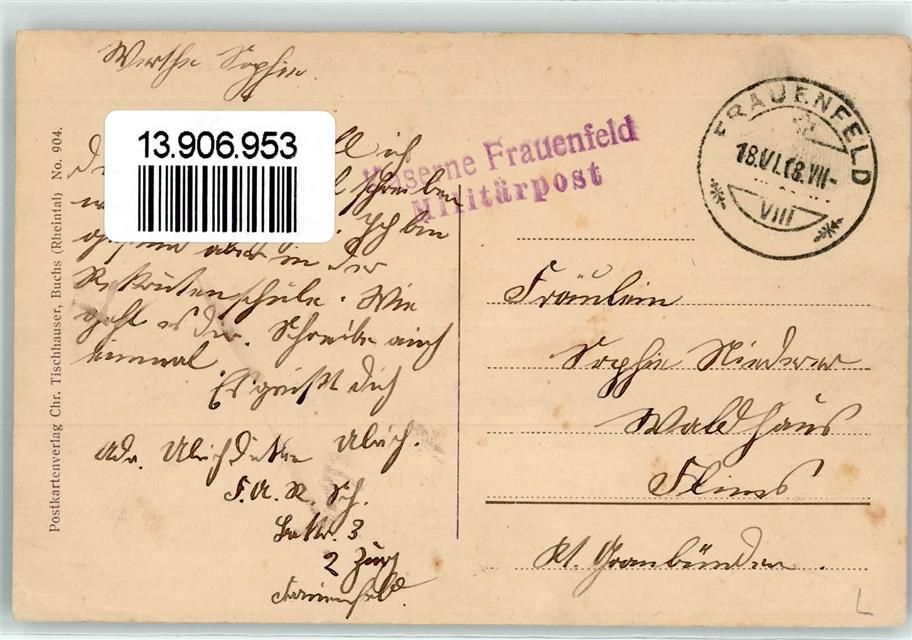 Werthe Sophie.
13.906.953
will ich
schreiben
Ich bin
aber in der
Rekrutenschule. Wie
geht es dir. Schreibe auch
einmal.
Es grüßt dich
Ulrich.
Adr. Ulrich
F. A. R. Sch.
Battr. 3
2 Zug
Frauenfeld.
Postkartenverlag Chr. Tischhauser, Buchs (Rheintal) No. 904.
Kaserne Frauenfeld
Militärpost
FRAUENFELD
18.VI.18.VII-
VIII
Fräulein
Sophie Niederer
Waldhaus
Flims
Kt. Graubünden.
L